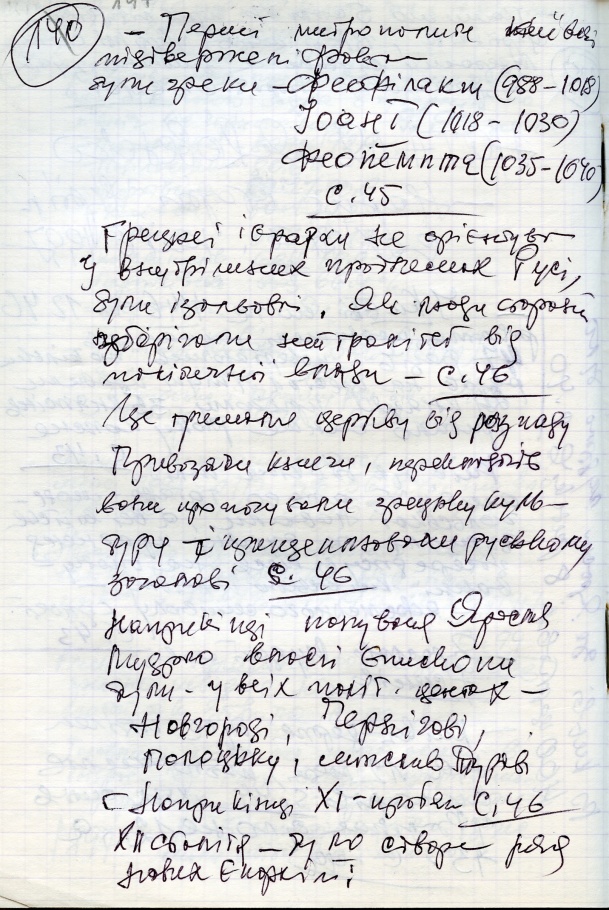 140
- Перші митрополити київські
підтверджені
були греки - Феофілакт (988-1018)
Іоанн I (1018-1030)
Феопемпта (1035-1040)
с. 45
Грецькі ієрархи не орієнтув
у внутрішніх проблемах Русі,
були ізольовані. Як люди сторонні
зберігали нейтралітет від
політичної влади - с. 46
Це тримало церкву від розпаду
Привозили книги, перекладачів
вони пропонували грецьку куль-
туру і
загалові с. 46
Наприкінці панування Яросл
Мудрого власні Єпископи
були - у всіх політ. центрах -
Новгороді, Чернігові,
Полоцьку, Турові
Наприкінці XI - поч. с. 46
XII століття - було створе ряд
нових Єпархій: